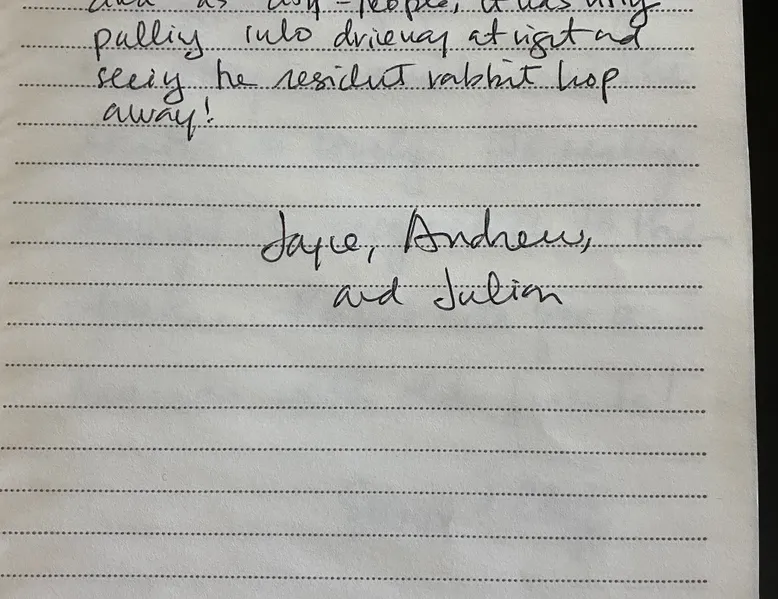 and as city-people, it was
pulling into driveway at night and
seeing the resident rabbit hop
away!
Joyce, Andrew,
and Julian